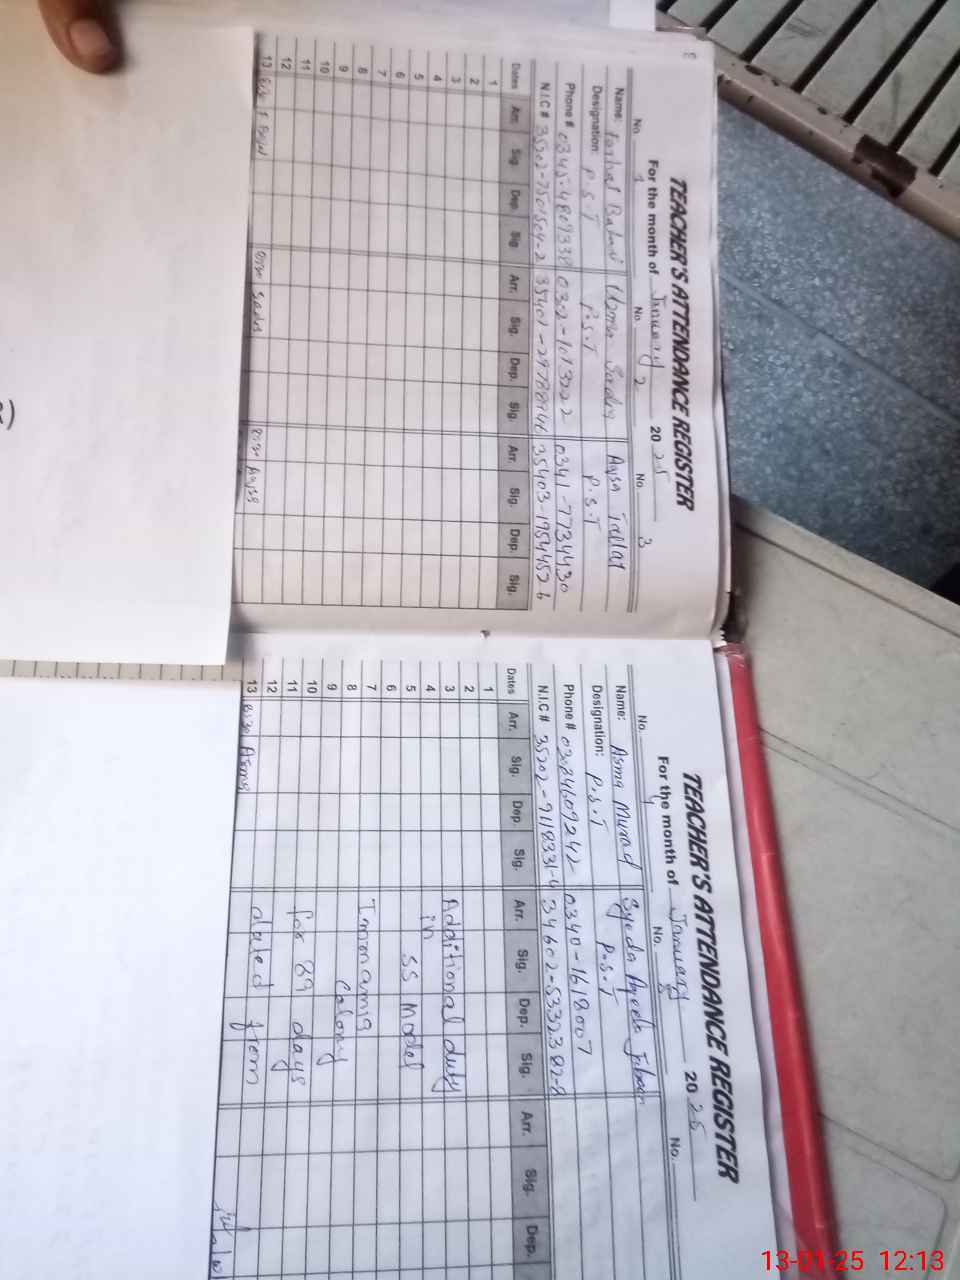 TEACHER'S ATTENDANCE REGISTER
For the month of January 2025
No. 1 No. 2 No. 3
Name: Aqsa Tallat
Designation: P.S.T P.S.T P.S.T
Phone # 0345-4809338 0302-1013222 0341-7734430
N.I.C # 35202-7501504-2 35401-2978894 35403-1954452 6
Dates Arr. Sig. Dep. Sig. Arr. Sig. Dep. Sig. Arr. Sig. Dep. Sig.
1
2
3
4
5
6
7
8
9
10
11
12
13 Aqsa
TEACHER'S ATTENDANCE REGISTER
For the month of January 2025
No. 4 No. 5 No.
Name: Asma Murad Syeda
Designation: P.S.T P.S.T
Phone # 03084609242 0340-1618007
N.I.C # 35202-9118331-4 34602-5332382-8
Dates Arr. Sig. Dep Sig. Arr. Sig. Dep. Sig. Arr. Sig. Dep.
1
2
3 Additional duty
4 in
5 SS Model
6
7 Imamamia
8
9 Colony
10
11 for 89 days
12
13 8:30 Asma dated from
13-01-25 12:13